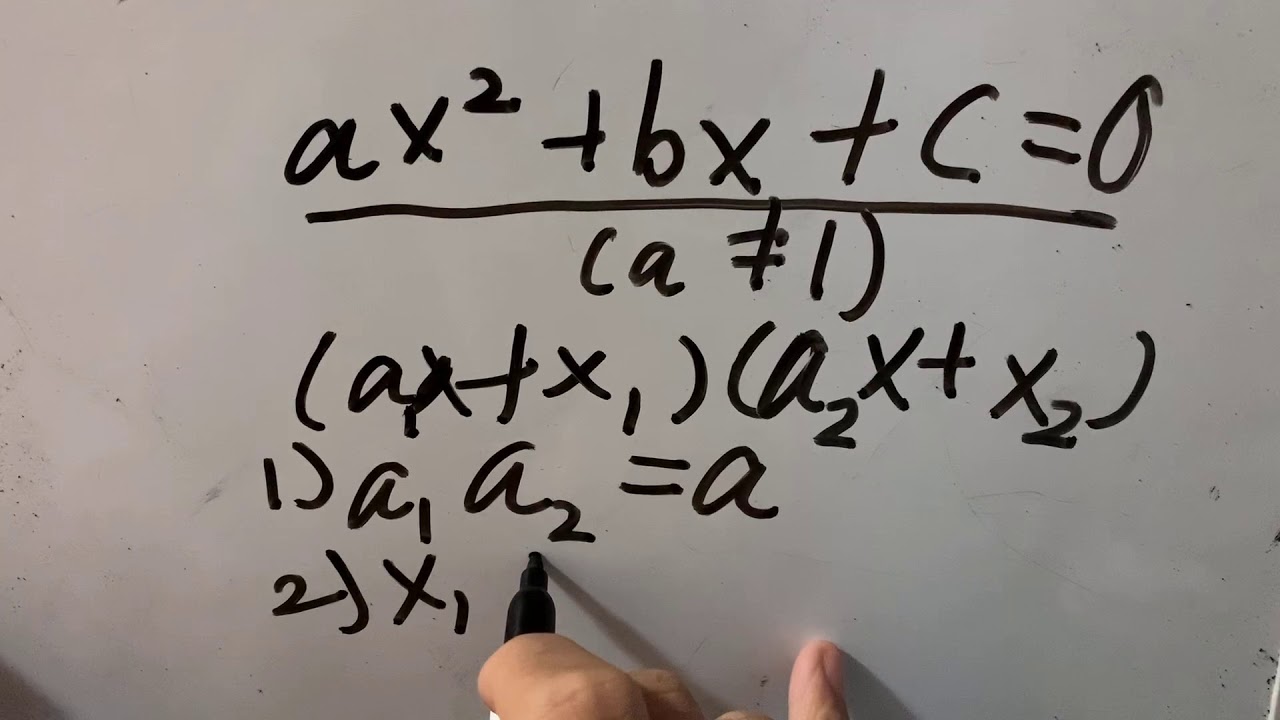 ax² + bx + c = 0
(a ≠ 1)
(a₁x + x₁)(a₂x + x₂)
1) a₁ a₂ = a
2) x₁